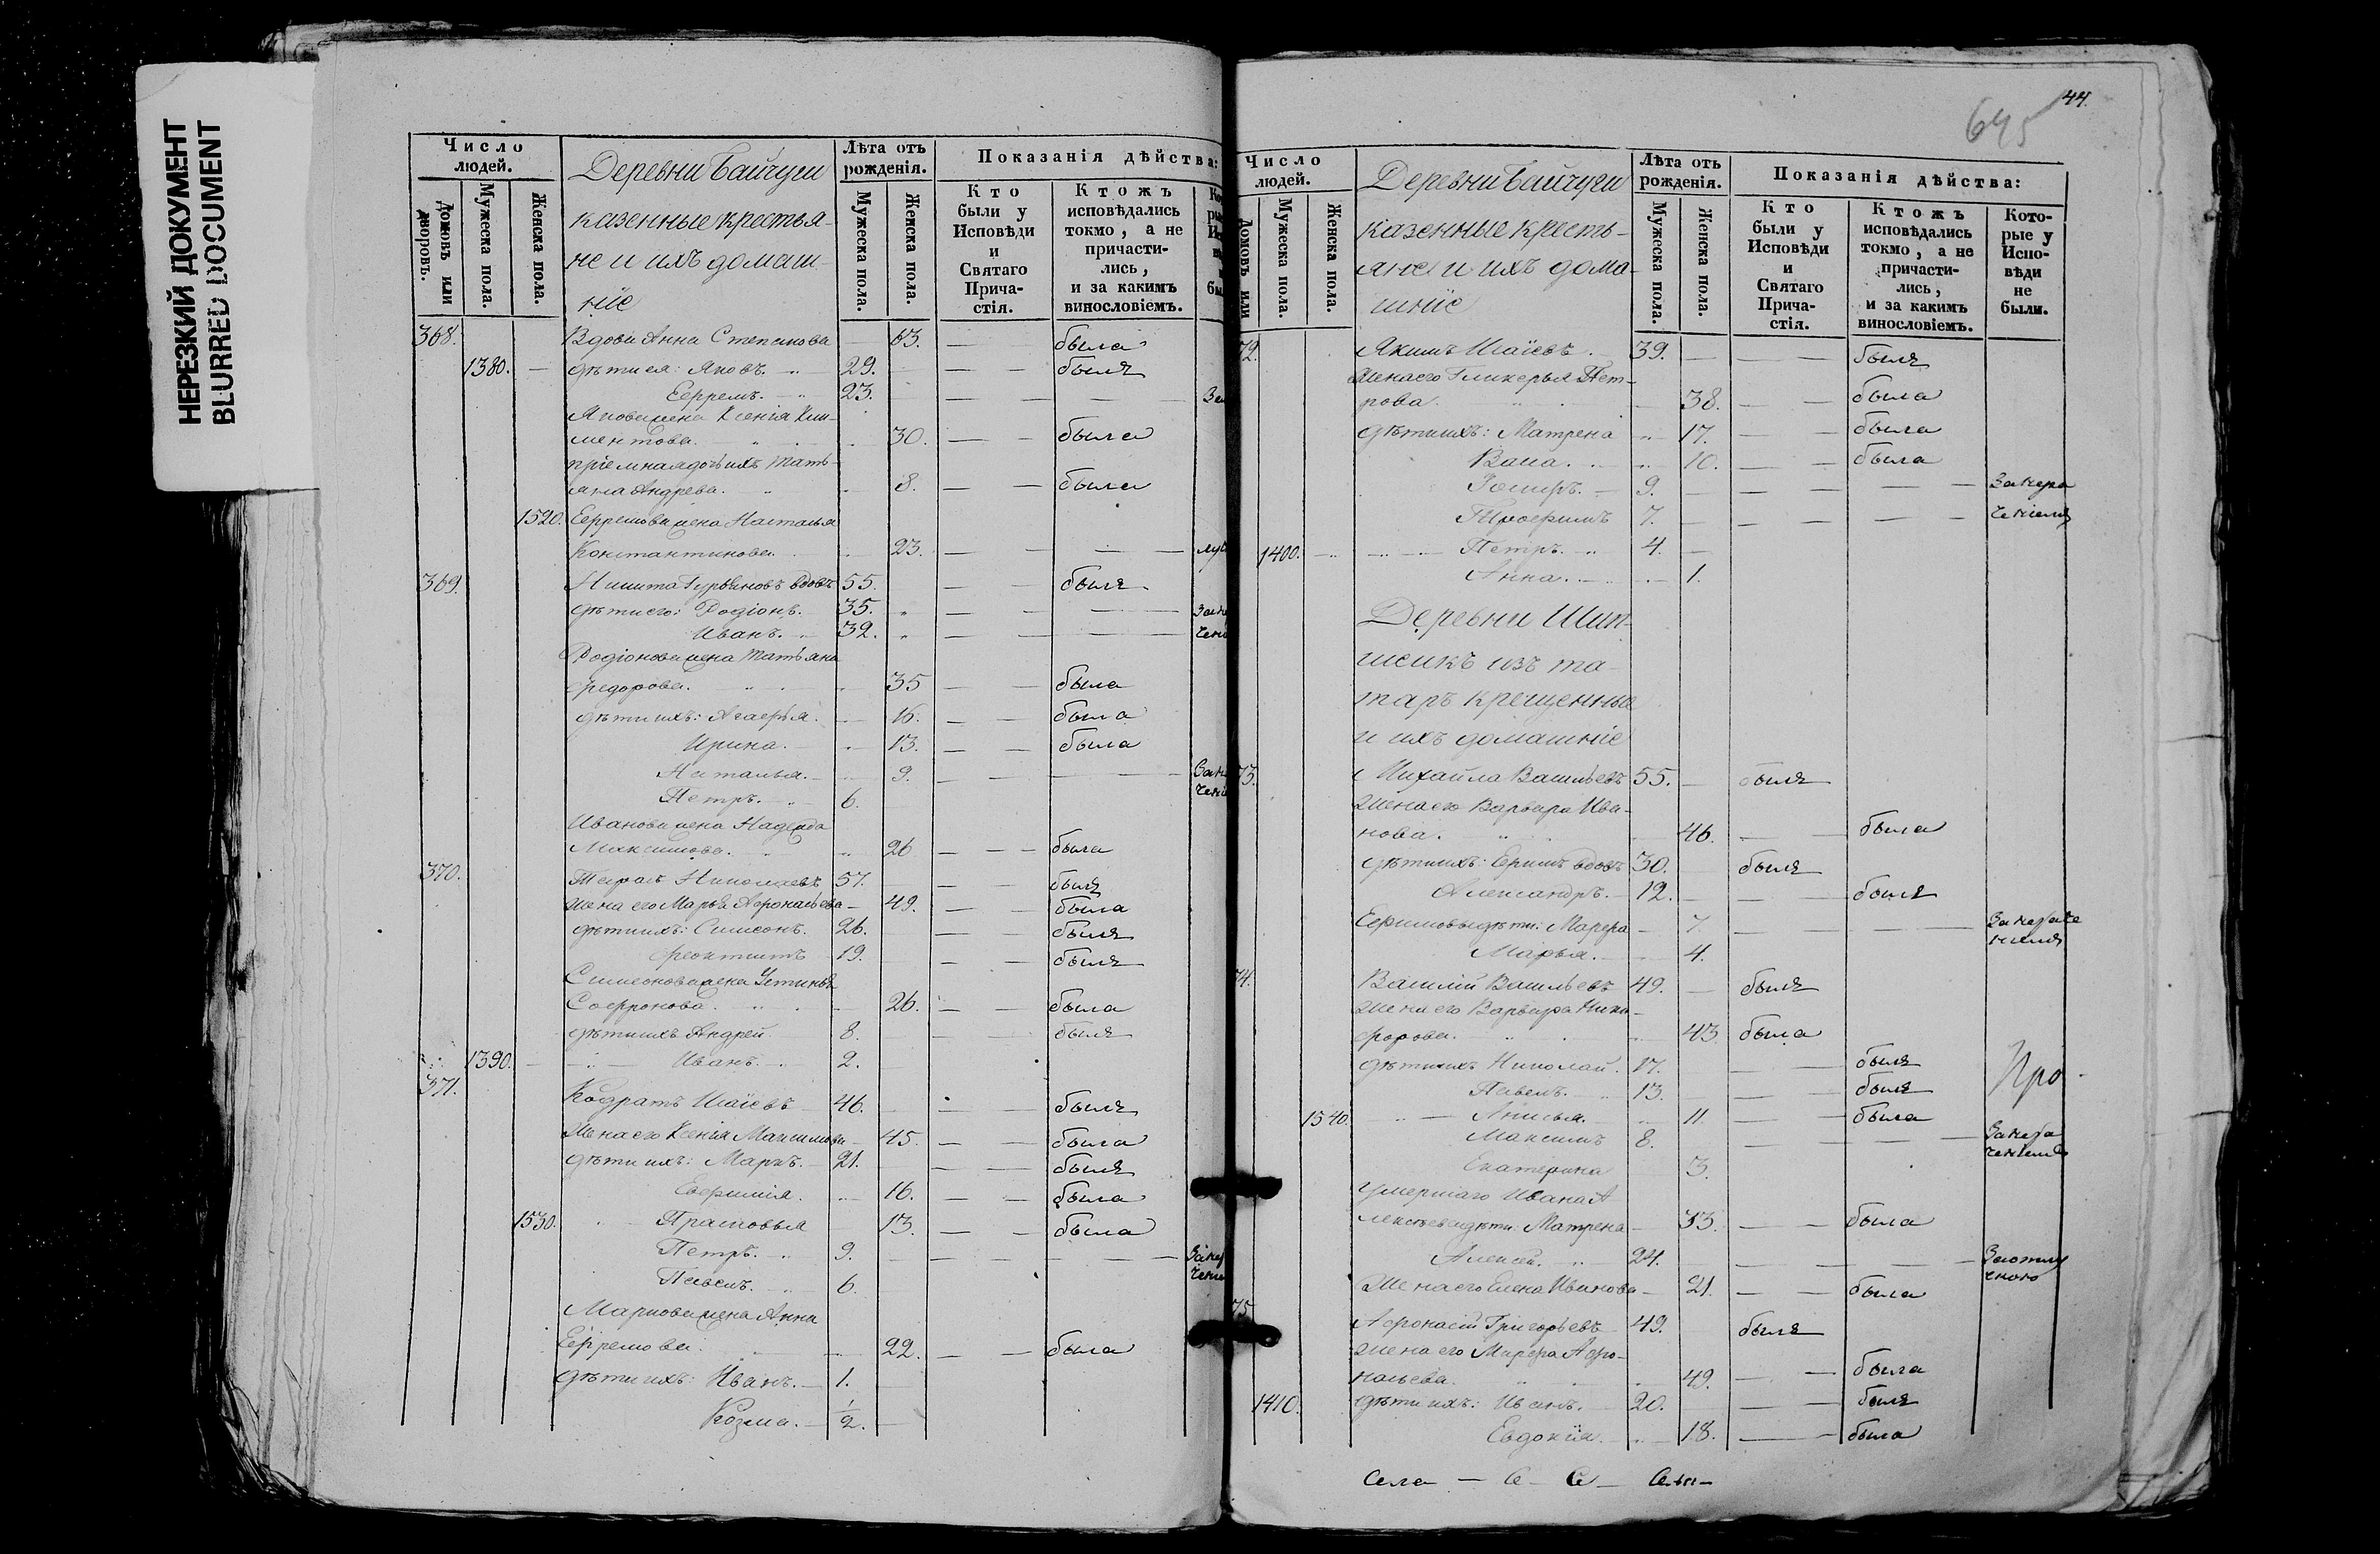 НЕРЕЗКИЙ ДОКУМЕНТ
BLURRED DOCUMENT
Число людей.
Домовъ или дворовъ.
Мужеска пола.
Женска пола.
Деревни Байчуги
казенные крестья-
не и ихъ домаш-
ніе
Лѣта отъ рожденія.
Мужеска пола.
Женска пола.
Показанія дѣйства:
Кто были у Исповѣди и Святаго Прича-стія.
Ктожъ исповѣдались токмо, а не причасти-лись, и за какимъ винословіемъ.
368. Вдова Анна Степанова 63. была
1380. дѣти ея: Яковъ. 29. былъ
Ефремъ. 23.
Яковы жена Ксенія Кли-
ментова. 30. была
пріемная дочь ихъ Тать-
яна Андрева. 8. была
1520. Ефремова жена Наталья
Константинова. 23.
369. Никита Гурьяновъ вдовъ 55. былъ
дѣти его: Родіонъ. 35.
Иванъ. 32.
Родіонова жена Татьяна
Федорова. 35 была
дѣти ихъ: Агафья. 16. была
Ирина. 13. была
Наталья. 9.
Петръ. 6.
Иванова жена Надежда
Максимова. 26 была
370. Тарасъ Николаевъ 57. былъ
жена его Марья Афонасьева 49. была
дѣти ихъ: Симеонъ. 26. былъ
Феоктистъ 19. былъ
Симеонова жена Устинья
Софронова. 26. была
дѣти ихъ Андрей 8. былъ
1390. Иванъ. 2.
371. Кодратъ Исаіевъ 46. былъ
жена его Ксенія Максимова 45. была
дѣти ихъ: Маркъ. 21. былъ
Евфимія. 16. была
1530. Прасковья 13. была
Петръ. 9.
Павелъ. 6.
Маркова жена Анна
Ефремова. 22. была
дѣти ихъ: Иванъ. 1.
Козма. 1/2.
44.
645
Число людей.
Домовъ или
Мужеска пола.
Женска пола.
Деревни Байчуги
казенные кресть-
яне и ихъ дома-
шніе
Лѣта отъ рожденія.
Мужеска пола.
Женска пола.
Показанія дѣйства:
Кто были у Исповѣди и Святаго Прича-стія.
Ктожъ исповѣдались токмо, а не причасти-лись, и за какимъ винословіемъ.
Кото-рые у Испо-вѣди не были.
72. Якимъ Исаіевъ. 39. былъ
жена его Гликерья Пет-
рова. 38. была
дѣти ихъ: Матрена 17. была
10. была
9. За нера
Трофимъ 7. ченіемъ
1400. Петръ. 4.
Анна. 1.
Деревни Шип-
шекъ изъ та-
таръ крещенные
и ихъ домашніе
73. Михайла Васильевъ 55. былъ
жена его Варвара Ива-
нова. 46. была
дѣти ихъ: Ефимъ вдовъ 30. былъ
Александръ. 12. былъ
Ефимовы дѣти: Марфа 7. За нераче
Марья. 4. ніемъ
74. Василій Васильевъ 49. былъ
жена его Варвара Ники-
форова. 43 была
дѣти ихъ Николай. 17. былъ
Павелъ. 13. былъ
Про
1540. Анисья. 11. была
Максимъ 8. За нера
ченіемъ
Екатерина 3.
умершаго Ивана А
лексѣева дѣти: Матрена 33. была
Алексей. 24. За отлу
чкою
жена его Елена Иванова 21. была
75. Афонасій Григорьевъ 49. былъ
жена его Марфа Афо-
насьева. 49. была
1410. дѣти ихъ: Иванъ. 20. былъ
Евдокія. 18. была
Села